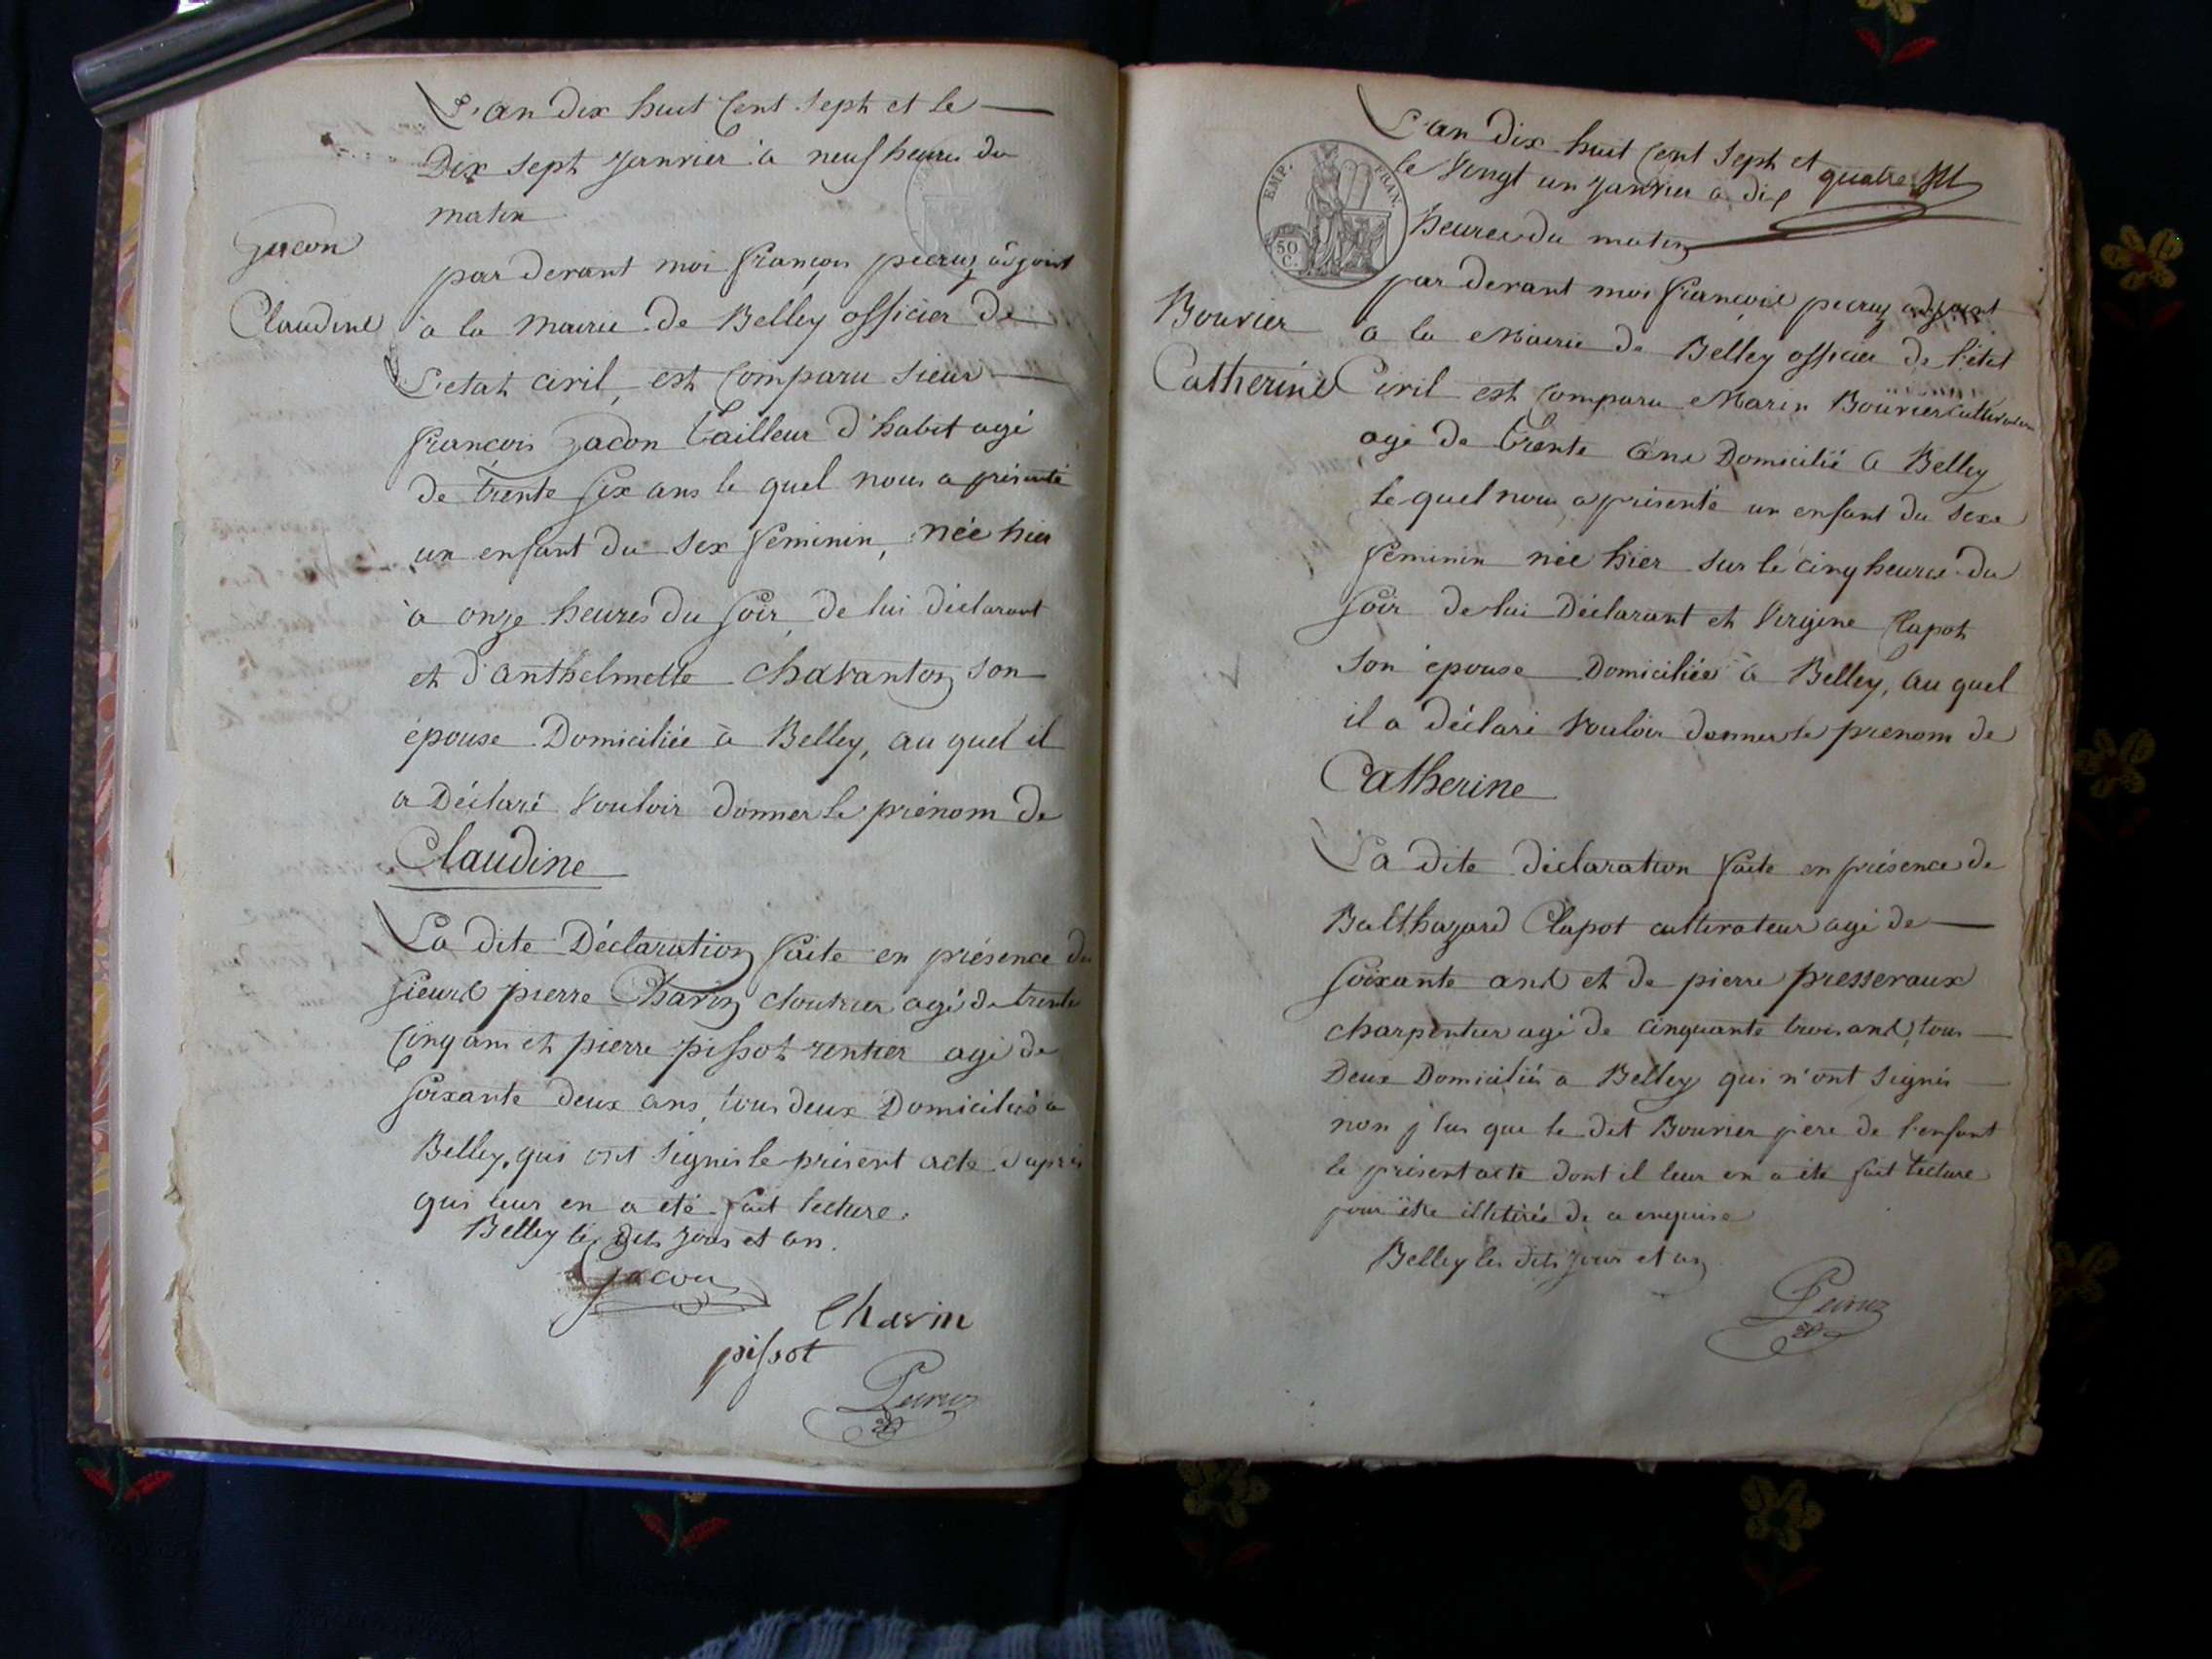 L'an dix huit cent sept et le
Dix sept janvier à neuf heures du
matin
Jacon
Claudine
par devant moi françois peeruz adjoint
à la Mairie de Belley officier de
L'etat civil, est comparu sieur
françois Jacon tailleur d'habit agé
de trente six ans le quel nous a présenté
un enfant du sex féminin, née hier
à onze heures du soir, de lui déclarant
et d'anthelmette Chavanton son
épouse Domiciliée à Belley, au quel il
a Déclaré vouloir donner le prénom de
Claudine
La dite Déclaration faite en présence de
sieurs pierre Charin cloutier agé de trente
cinq ans et pierre pissot rentier agé de
soixante deux ans, tous deux Domiciliés à
Belley, qui ont signés le présent acte d'après
qui leur en a eté fait lecture.
Belley les dits jour et an.
Jacon
Charin
pissot
Peeruz
L'an dix huit cent sept et
quatre
le vingt un janvier a dix
heures du matin
EMP. FRAN.
50 C.
Bouvier
Catherine
par devant moi françois peeruz adjoint
a la Mairie de Belley officier de l'état
Civil est comparu Marin Bouvier cultivateur
agé de trente ans Domicilié a Belley
le quel nous a présenté un enfant du sexe
féminin née hier sur le cinq heures du
soir de lui Déclarant et Virgine Clapot
son épouse Domiciliée à Belley, au quel
il a déclaré vouloir donner le prenom de
Catherine
La dite déclaration faite en présence de
Balthazard Clapot cultivateur agé de
soixante ans et de pierre presseraux
charpentier agé de cinquante trois ans, tous
Deux Domiciliés a Belley qui n'ont signés
non plus que le dit Bouvier père de l'enfant
le présent acte dont il leur en a été fait lecture
pour être illitérés de ce enquise
Belley les dits jour et an
Peeruz